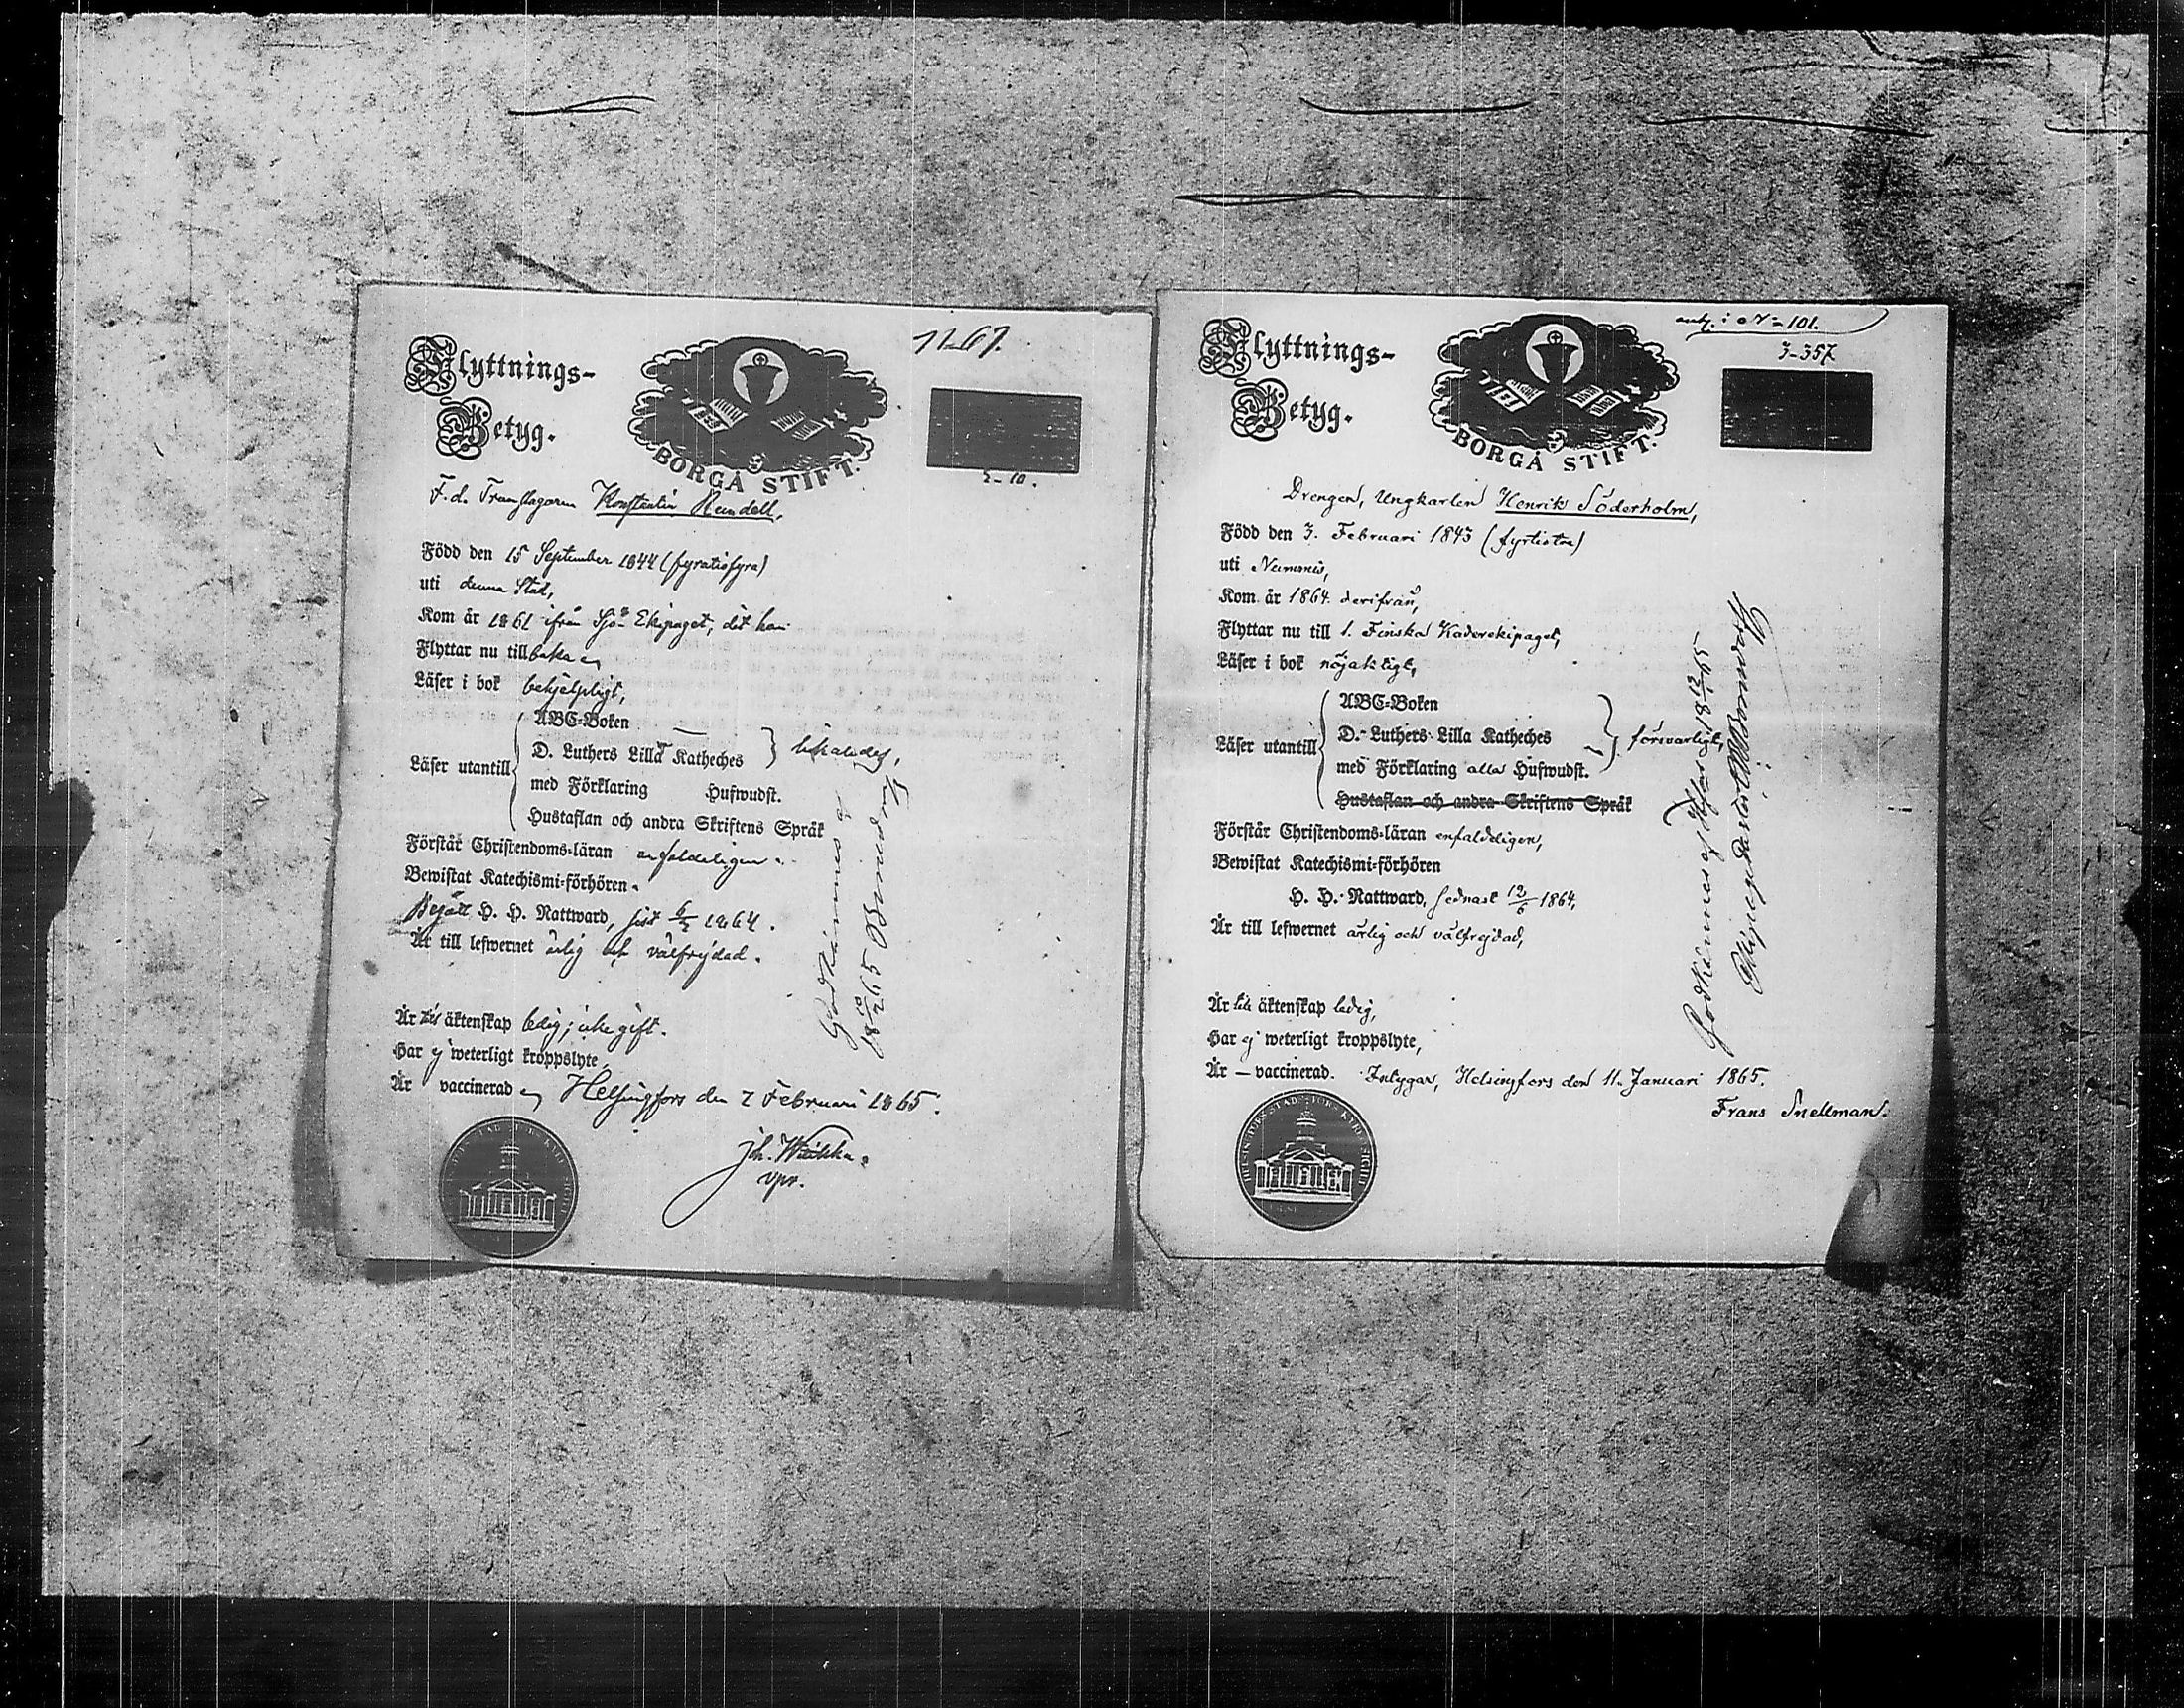 Flyttnings-
Betyg.
BORGÅ STIFT.
11-67.
2-10.
F. d. Trumslagaren Konstantin Rundell,
Född den 15 September 1844 (fyratiofyra)
uti denna Stad,
Kom år 1861 ifrån Sjö-Ekipaget, dit han
Flyttar nu tillbaka
Läser i bok behjelpligt,
Läser utantill
ABC-Boken
D. Luthers Lilla Katheches
med Förklaring Hufwudst.
Hustaflan och andra Skriftens Språk
Förstår Christendoms-läran enfaldeligen.
Bewistat Katechismi-förhören.
Begått H. H. Nattward, sist 1864.
Är till lefwernet ärlig och välfrejdad.
Är till äktenskap ledig; icke gift.
Har ej weterligt kroppslyte,
Är vaccinerad Helsingfors den 7 Februari 1865.
Joh.
vpr.
Godkännes af
18 10/2 65
Flyttnings-
Betyg.
BORGÅ STIFT.
101.
3-357
Drengen, Ungkarlen Henrik Söderholm,
Född den 3. Februari 1843 (fyrtiotre)
uti Nummis,
Kom år 1864 derifrån,
Flyttar nu till 1. Finska Kaderekipaget,
Läser i bok nöjaktigt,
Läser utantill
ABC-Boken
D. Luthers Lilla Katheches
med Förklaring alla Hufwudst.
försvarligt,
Hustaflan och andra Skriftens Språk
Förstår Christendoms-läran enfaldeligen,
Bewistat Katechismi-förhören
H. H. Nattward, sednast 12/6 1864,
Är till lefwernet ärlig och välfrejdad,
Är till äktenskap ledig,
Har ej weterligt kroppslyte,
Är — vaccinerad. Intygar, Helsingfors den 11. Januari 1865.
Frans Snellman.
Godkännes af